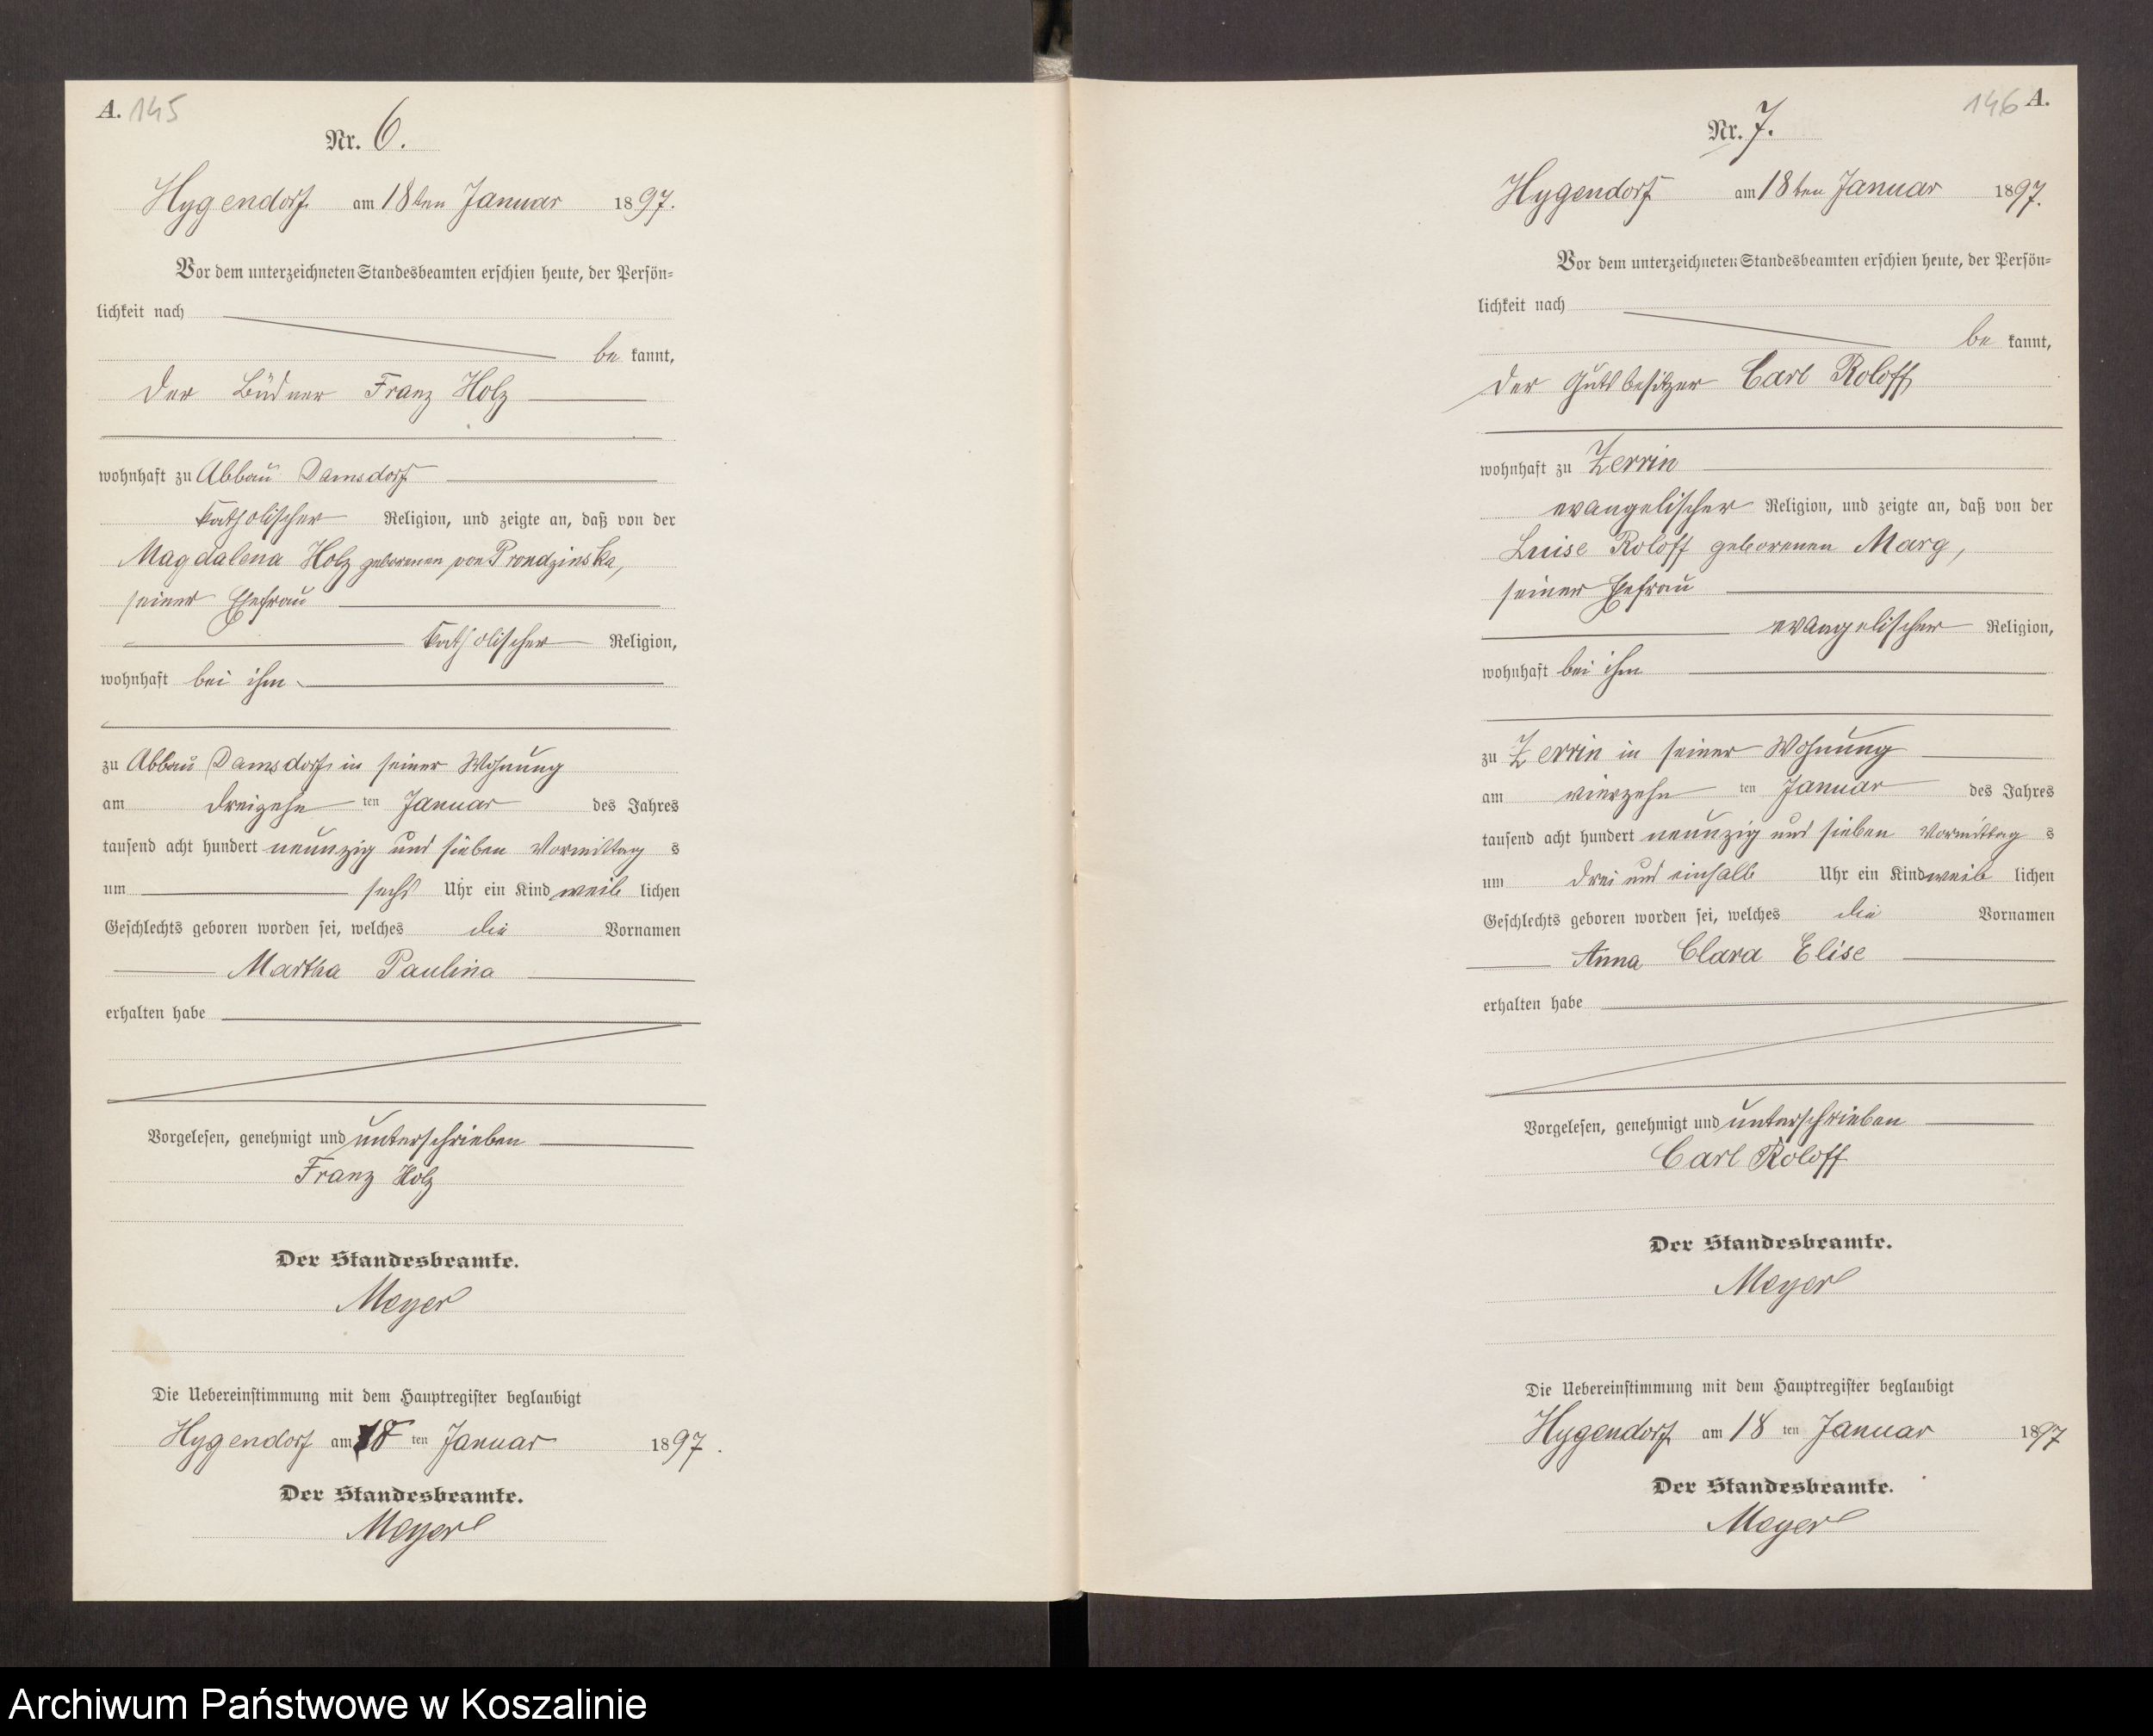 A. 145
Nr. 6.
Hygendorf am 18ten Januar 1897.
Vor dem unterzeichneten Standesbeamten erschien heute, der Persön=
lichkeit nach
be kannt,
der Büdner Franz Holz
wohnhaft zu Abbau Damsdorf
katholischer Religion, und zeigte an, daß von der
Magdalena Holz geborenen von Prondzinska,
seiner Ehefrau
katholischer Religion,
wohnhaft bei ihm
zu Abbau Damsdorf in seiner Wohnung
am dreizehn ten Januar des Jahres
tausend acht hundert neunzig und sieben Vormittag s
um sechs Uhr ein Kind weib lichen
Geschlechts geboren worden sei, welches die Vornamen
Martha Paulina
erhalten habe
Vorgelesen, genehmigt und unterschrieben
Franz Holz
Der Standesbeamte.
Meyer
Die Uebereinstimmung mit dem Hauptregister beglaubigt
Hygendorf am 18 ten Januar 1897.
Der Standesbeamte.
Meyer
146 A.
Nr. 7.
Hygendorf am 18ten Januar 1897.
Vor dem unterzeichneten Standesbeamten erschien heute, der Persön=
lichkeit nach
be kannt,
der Gutsbesitzer Carl Roloff
wohnhaft zu Zerrin
evangelischer Religion, und zeigte an, daß von der
Luise Roloff geborenen Marg,
seiner Ehefrau
evangelischer Religion,
wohnhaft bei ihm
zu Zerrin in seiner Wohnung
am vierzehn ten Januar des Jahres
tausend acht hundert neunzig und sieben Vormittag s
um drei und einhalb Uhr ein Kind weib lichen
Geschlechts geboren worden sei, welches die Vornamen
Anna Clara Elise
erhalten habe
Vorgelesen, genehmigt und unterschrieben
Carl Roloff
Der Standesbeamte.
Meyer
Die Uebereinstimmung mit dem Hauptregister beglaubigt
Hygendorf am 18 ten Januar 1897
Der Standesbeamte.
Meyer
Archiwum Państwowe w Koszalinie